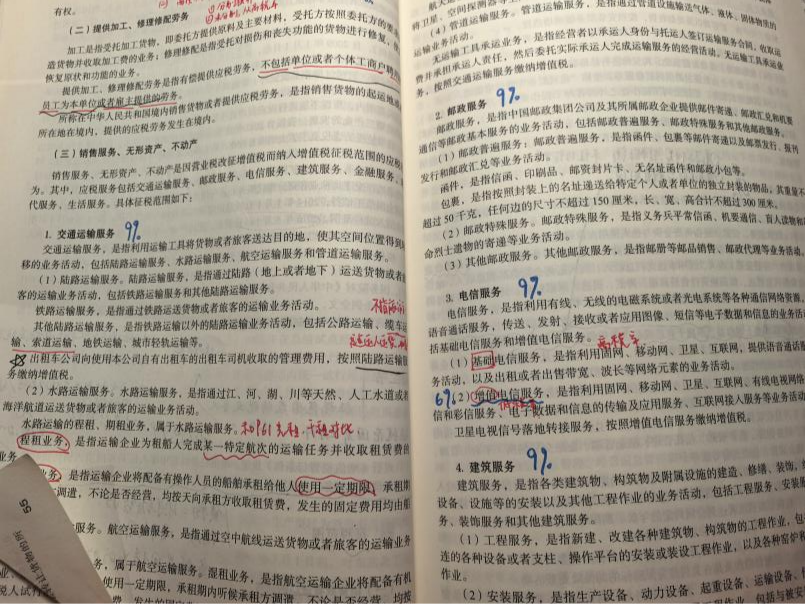 有权。
(二)提供加工、修理修配劳务
加工是指受托加工货物,即委托方提供原料及主要材料,受托方按照委托方的要求
造货物并收取加工费的业务;修理修配是指受托对损伤和丧失功能的货物进行修复,使
恢复原状和功能的业务。
提供加工、修理修配劳务是指有偿提供应税劳务,不包括单位或者个体工商户聘用
员工为本单位或者雇主提供的劳务。
所称在中华人民共和国境内销售货物或者提供应税劳务,是指销售货物的起运地或
所在地在境内,提供的应税劳务发生在境内。
(三)销售服务、无形资产、不动产
销售服务、无形资产、不动产是因营业税改征增值税而纳入增值税征税范围的应税
为。其中,应税服务包括交通运输服务、邮政服务、电信服务、建筑服务、金融服务、
代服务、生活服务。具体征税范围如下:
1. 交通运输服务 9%
交通运输服务,是指利用运输工具将货物或者旅客送达目的地,使其空间位置得到
移的业务活动,包括陆路运输服务、水路运输服务、航空运输服务和管道运输服务。
(1)陆路运输服务。陆路运输服务,是指通过陆路(地上或者地下)运送货物或者旅
客的运输业务活动,包括铁路运输服务和其他陆路运输服务。
铁路运输服务,是指通过铁路运送货物或者旅客的运输业务活动。
其他陆路运输服务,是指铁路运输以外的陆路运输业务活动,包括公路运输、缆车运
输、索道运输、地铁运输、城市轻轨运输等。
出租车公司向使用本公司自有出租车的出租车司机收取的管理费用,按照陆路运输服
务缴纳增值税。
(2)水路运输服务。水路运输服务,是指通过江、河、湖、川等天然、人工水道或者
海洋航道运送货物或者旅客的运输业务活动。
水路运输的程租、期租业务,属于水路运输服务。
程租业务,是指运输企业为租船人完成某一特定航次的运输任务并收取租赁费的
业务。
业务,是指运输企业将配备有操作人员的船舶承租给他人使用一定期限,承租期
调遣,不论是否经营,均按天向承租方收取租赁费,发生的固定费用均由船
服务。航空运输服务,是指通过空中航线运送货物或者旅客的运输业务
务,属于航空运输服务。湿租业务,是指航空运输企业将配备有机
使用一定期限,承租期内听候承租方调遣,不论是否经营,均按
55
(4)管道运输服务。管道运输服务,是指通过管道设施输送气体、液体、固体物质的
运输业务活动。
无运输工具承运业务,是指经营者以承运人身份与托运人签订运输服务合同,收取运
费并承担承运人责任,然后委托实际承运人完成运输服务的经营活动。无运输工具承运业
务,按照交通运输服务缴纳增值税。
2. 邮政服务 9%
邮政服务,是指中国邮政集团公司及其所属邮政企业提供邮件寄递、邮政汇兑和机要
通信等邮政基本服务的业务活动,包括邮政普遍服务、邮政特殊服务和其他邮政服务。
(1)邮政普遍服务:邮政普遍服务,是指函件、包裹等邮件寄递以及邮票发行、报刊
发行和邮政汇兑等业务活动。
函件,是指信函、印刷品、邮资封片卡、无名址函件和邮政小包等。
包裹,是指按照封装上的名址递送给特定个人或者单位的独立封装的物品,其重量不
超过 50 千克,任何边的尺寸不超过 150 厘米,长、宽、高合计不超过 300 厘米。
(2)邮政特殊服务。邮政特殊服务,是指义务兵平常信函、机要通信、盲人读物和
命烈士遗物的寄递等业务活动。
(3)其他邮政服务。其他邮政服务,是指邮册等邮品销售、邮政代理等业务活动。
3. 电信服务 9%
电信服务,是指利用有线、无线的电磁系统或者光电系统等各种通信网络资源,
语音通话服务,传送、发射、接收或者应用图像、短信等电子数据和信息的业务活
括基础电信服务和增值电信服务。
(1)基础电信服务,是指利用固网、移动网、卫星、互联网,提供语音通话服
务活动,以及出租或者出售带宽、波长等网络元素的业务活动。
6% (2)增值电信服务,是指利用固网、移动网、卫星、互联网、有线电视网络
信和彩信服务、电子数据和信息的传输及应用服务、互联网接入服务等业务活动
卫星电视信号落地转接服务,按照增值电信服务缴纳增值税。
4. 建筑服务 9%
建筑服务,是指各类建筑物、构筑物及附属设施的建造、修缮、装饰,
设备、设施等的安装以及其他工程作业的业务活动,包括工程服务、安装服
务、装饰服务和其他建筑服务。
(1)工程服务,是指新建、改建各种建筑物、构筑物的工程作业,包
连的各种设备或者支柱、操作平台的安装或装设工程作业,以及各种窑炉和
作业。
(2)安装服务,是指生产设备、动力设备、起重设备、运输设备、